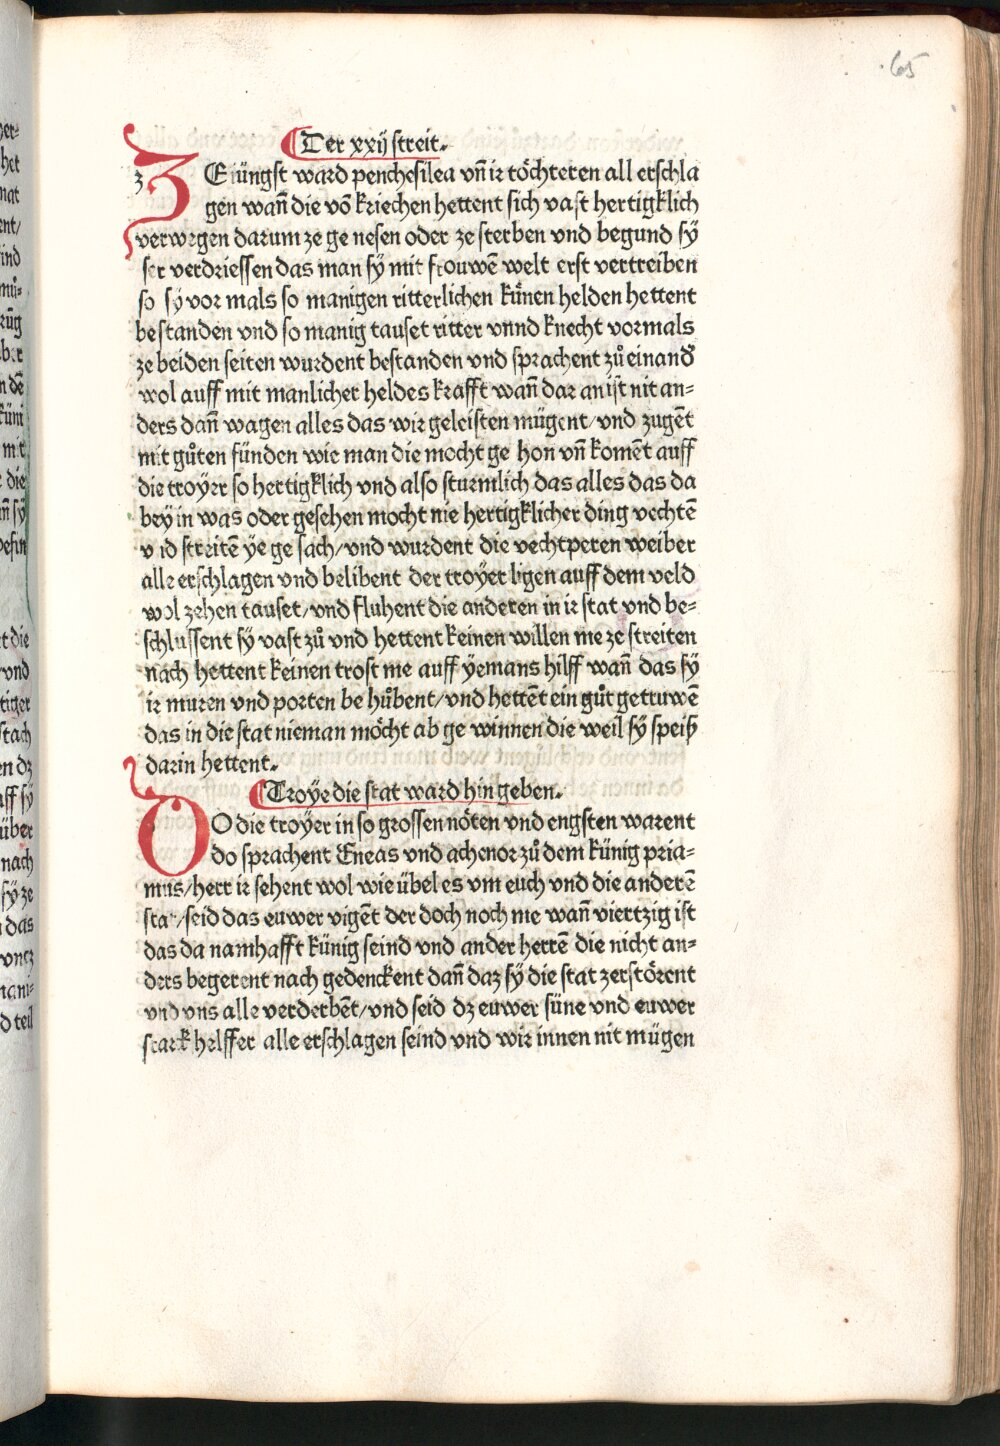 65
Der xxij streit.
ZE iüngst ward penthesilea vñ ir töchteren all erschla
gen wañ die vō kriechen hettent sich vast hertigklich
verwegen darum ze ge nesen oder ze sterben vnd begund sÿ
ser verdriessen das man sÿ mit frouwē welt erst vertreiben
so sÿ vor mals so manigen ritterlichen künen helden hettent
bestanden vnd so manig tauset ritter vnnd knecht vormals
ze beiden seiten wurdent bestanden vnd sprachent zů einand̄
wol auff mit manlicher heldes krafft wañ dar an ist nit an=
ders dañ wagen alles das wir geleisten mügent/vnd zugēt
mit gůten fünden wie man die mocht ge hon vñ komēt auff
die troÿer so hertigklich vnd also sturmlich das alles das da
beÿ in was oder gesehen mocht nie hertigklicher ding vechtē
vnd streitē ÿe ge sach/vnd wurdent die vechtperen weiber
alle erschlagen vnd belibent der troÿer ligen auff dem veld
wol zehen tauset/vnd fluhent die anderen in ir stat vnd be=
schlussent sÿ vast zů vnd hettent keinen willen me ze streiten
nach hettent keinen trost me auff ÿemans hilff wañ das sÿ
ir muren vnd porten be hůbent/vnd hettēt ein gůt getruwē
das in die stat nieman möcht ab ge winnen die weil sÿ speiß
darin hettent.
Troÿe die stat ward hin geben.
DO die troÿer in so grossen nöten vnd engsten warent
do sprachent Eneas vnd achenor zů dem künig pria=
mus/herr ir sehent wol wie übel es vm euch vnd die anderē
stat/seid das euwer vigēt der doch noch me wañ viertzig ist
das da namhafft künig seind vnd ander herrē die nicht an=
ders begerent nach gedenckent dañ daz sÿ die stat zerstörent
vnd vns alle verderbēt/vnd seid dz euwer süne vnd euwer
starck helffer alle erschlagen seind vnd wir innen nit mügen